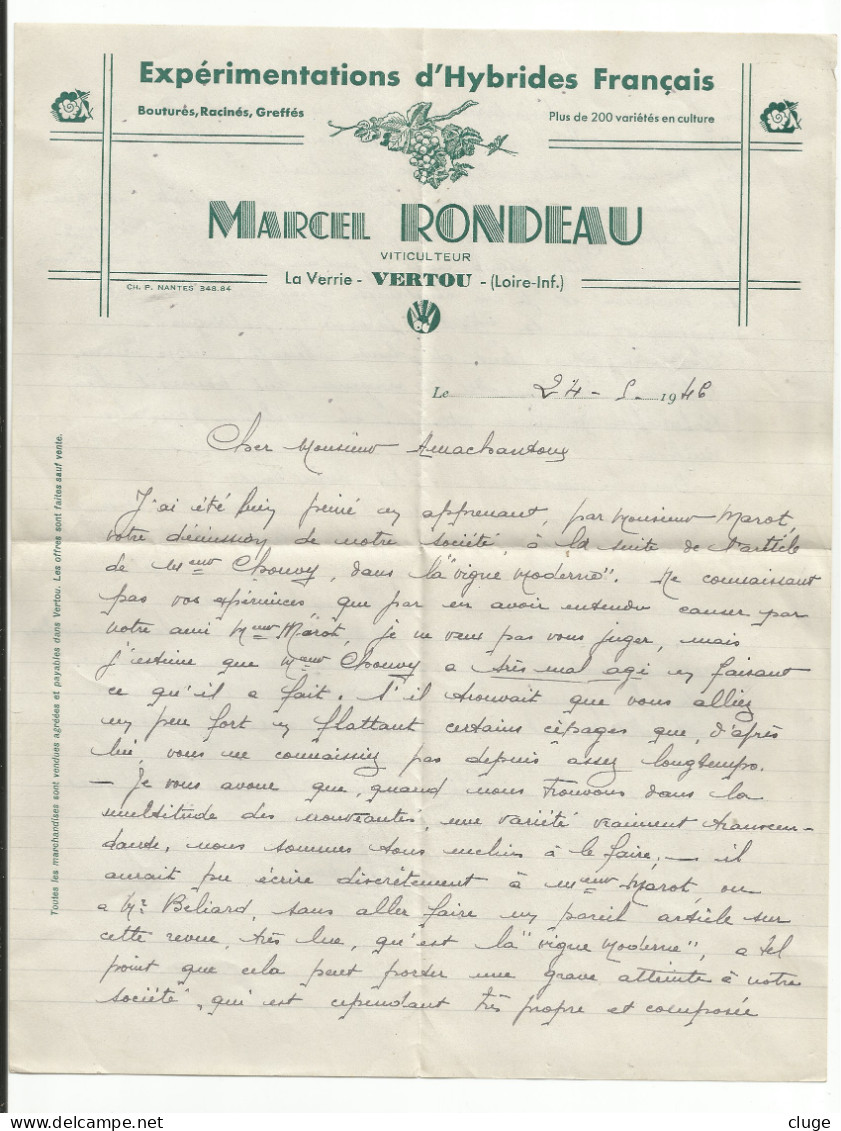 Expérimentations d'Hybrides Français
Bouturés, Racinés, Greffés
Plus de 200 variétés en culture
MARCEL RONDEAU
VITICULTEUR
La Verrie - VERTOU - (Loire-Inf.)
CH. P. NANTES 348.84
Le 24 - 5 - 1946
Cher Monsieur
J'ai été bien peiné en apprenant, par Monsieur Marot,
votre démission de notre société, à la suite de l'article
de Mr Chouvy, dans la "vigne Moderne". Ne connaissant
pas vos expériences, que par en avoir entendu causer par
notre ami Mr Marot, je ne veux pas vous juger, mais
j'estime que Mr Chouvy a très mal agi en faisant
ce qu'il a fait. S'il trouvait que vous alliez
un peu fort en flattant certains cépages que, d'après
lui, vous ne connaissiez pas depuis assez longtemps.
— Je vous avoue que, quand nous trouvons dans la
multitude des nouveautés, une variété vraiment transcen-
dante, nous sommes tous enclins à le faire, — il
aurait pu écrire discrètement à Mr Marot, ou
a Mr Beliard, sans aller faire un pareil article sur
cette revue, très lue, qu'est la "vigne Moderne", a tel
point que cela peut porter une grave atteinte à notre
société, qui est cependant très propre et composée
Toutes les marchandises sont vendues agréées et payables dans Vertou. Les offres sont faites sauf vente.
cluge